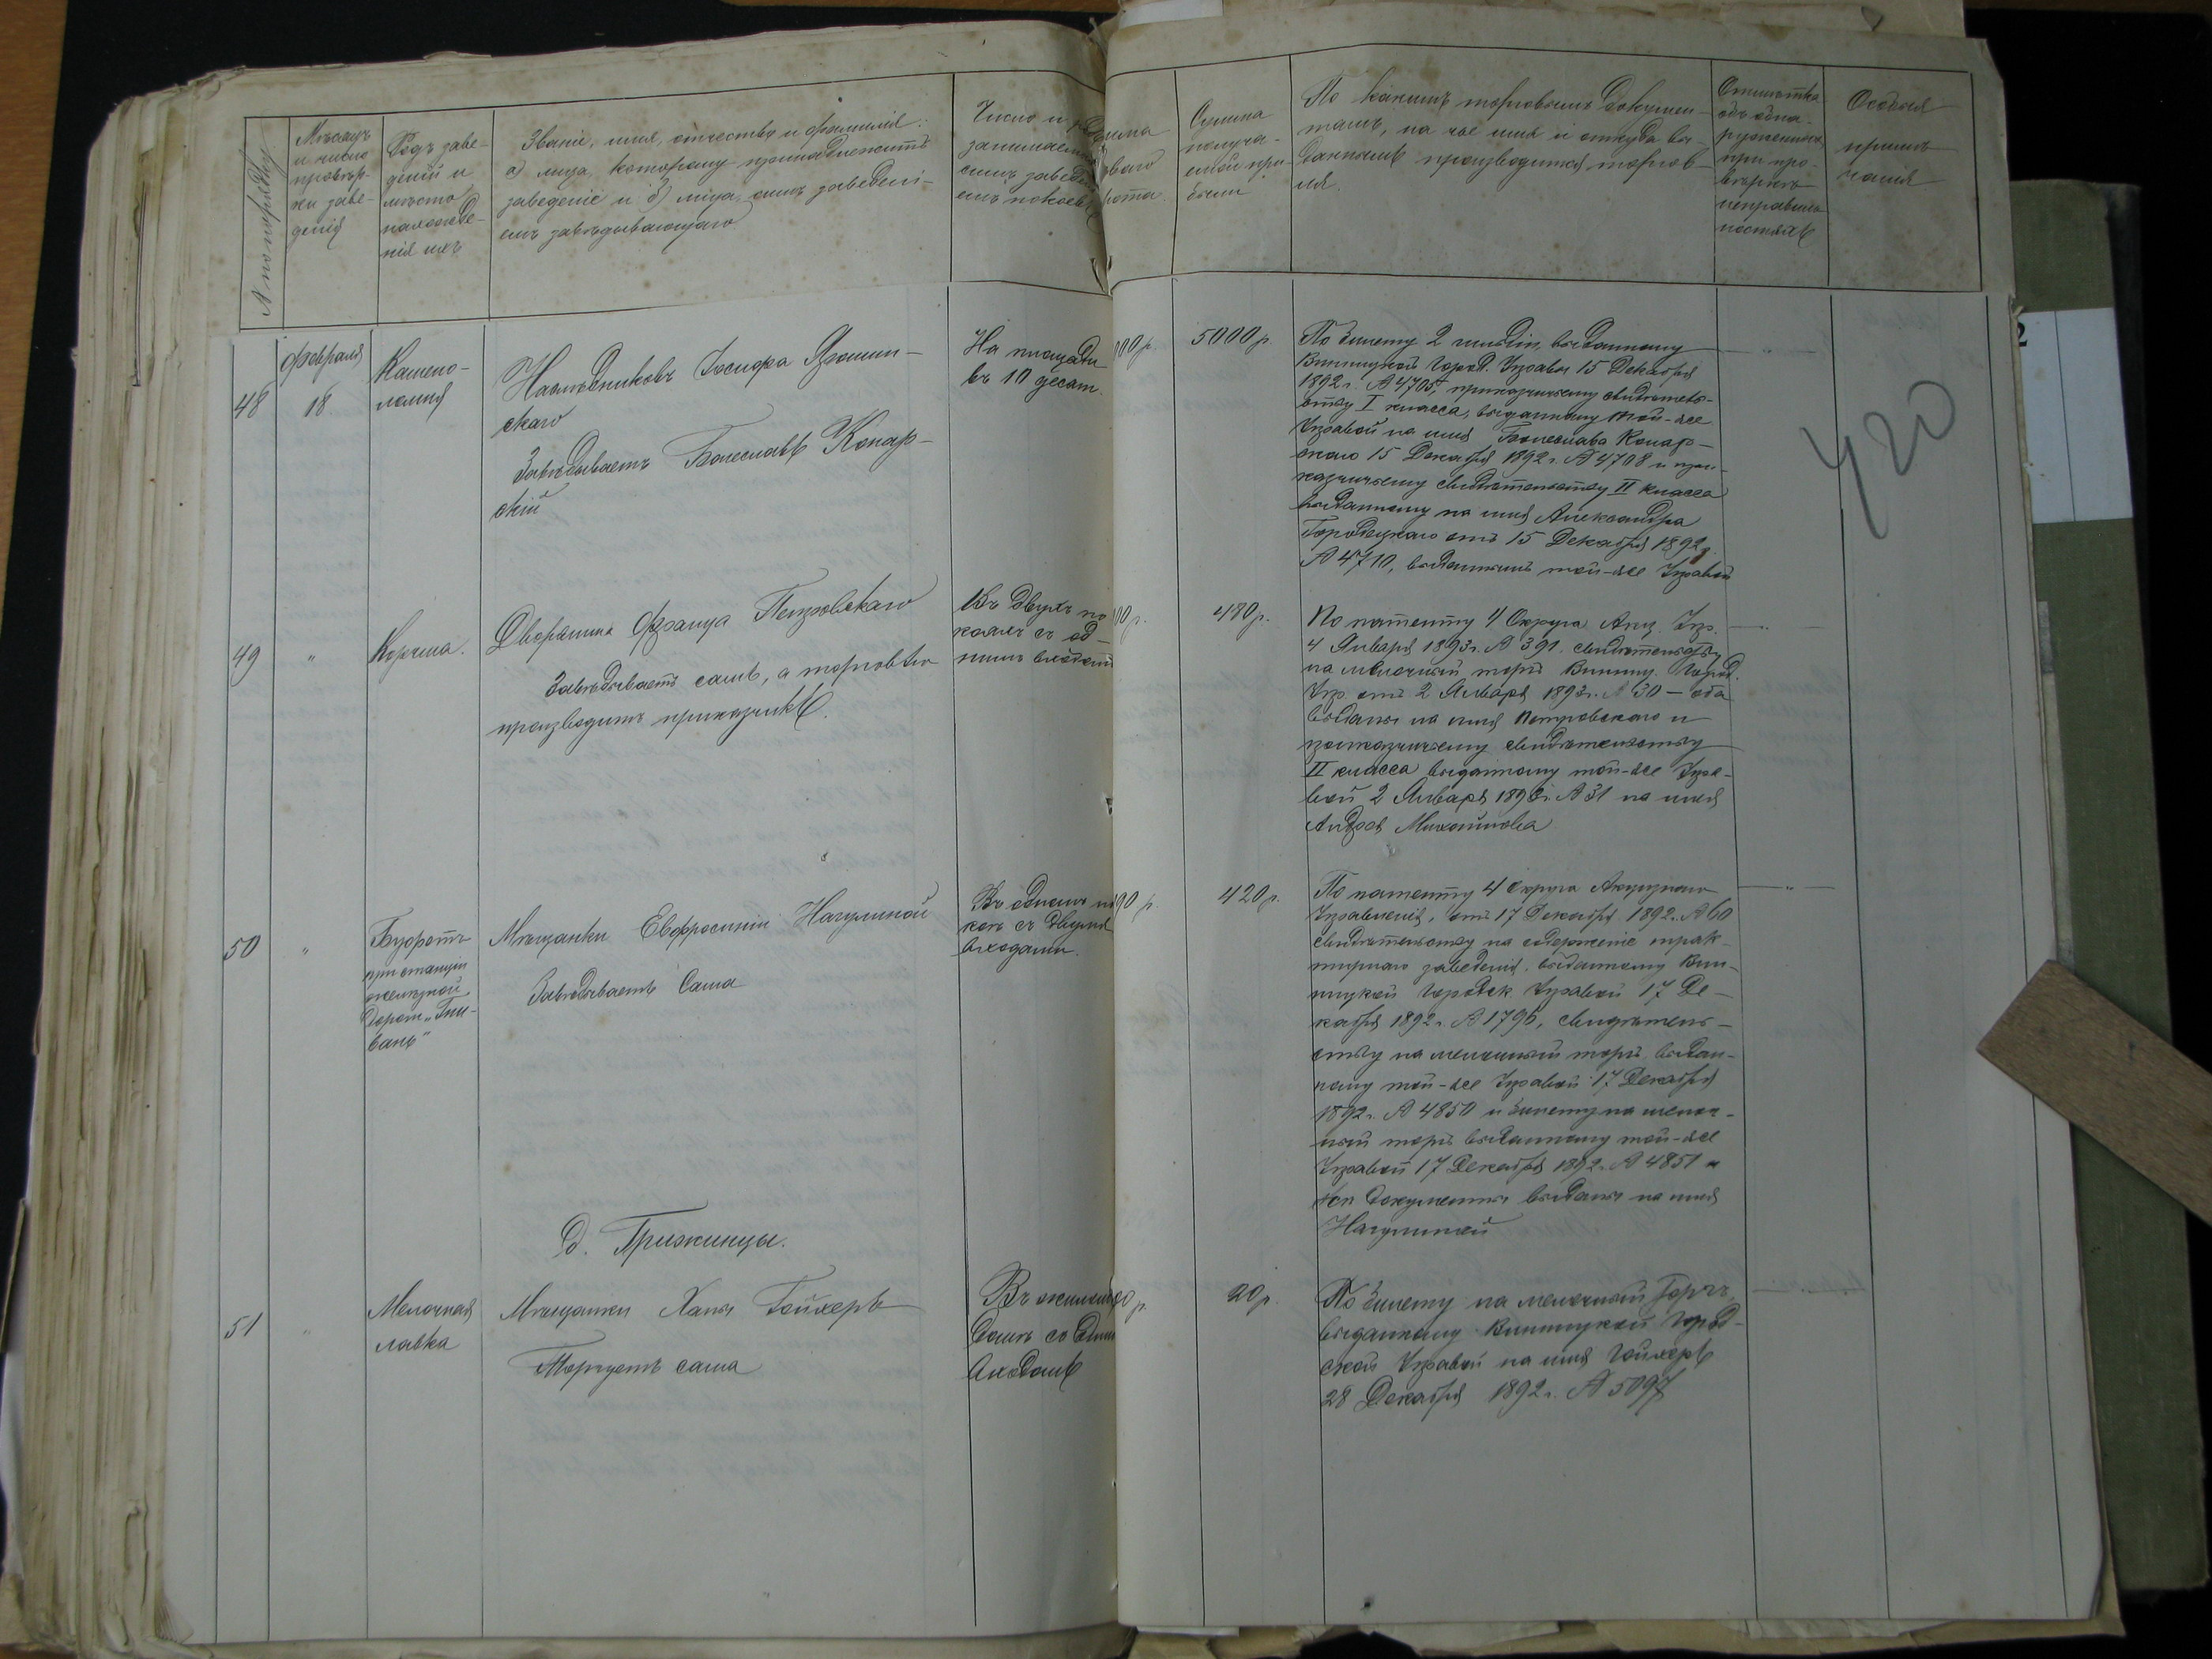 № по порядку
Мѣсяцъ
и число
провѣр-
ки заве-
денія
Родъ заве-
деній и
мѣсто
нахожде-
нія ихъ
Званіе, имя, отчество и фамилія:
а) лица, которому принадлежитъ
заведеніе и б) лица, симъ заведені-
емъ завѣдывающаго
Число и
занимаемыхъ
симъ заведені-
емъ покоевъ
Сумма
получа-
емой при-
были
По какимъ торговымъ докумен-
тамъ, на чье имя и откуда вы-
даннымъ производится торгов-
ля.
Отмѣтка
объ обна-
руженныхъ
при про-
вѣркѣ
неправиль-
ностяхъ
Особыя
примѣ-
чанія
48
Февраля
18
Камено-
ломня
Наслѣдниковъ Іосифа Ярошин-
скаго
Завѣдываетъ Болеславъ Конар-
скій
На площади
въ 10 десят.
00 р.
5000 р.
По билету 2 гильдіи, выданному
Винницкой Город. Управы 15 Декабря
1892 г. № 4705, приказчичьему свидѣтель-
ству I класса, выданному той-же
Управой на имя Болеслава Конар-
скаго 15 Декабря 1892 г. № 4708 и при-
казчичьему свидѣтельству II класса
выданному на имя Александра
Городецкаго отъ 15 Декабря 1892 г.
№ 4710, выданнымъ той-же Управой
420
49
"
Корчма.
Дворянина Франца Петровскаго
Завѣдываетъ самъ, а торговлю
производитъ приказчикъ.
Въ двухъ по
кояхъ съ од-
нимъ входомъ
00 р.
480 р.
По патенту 4 Округа Акц. Упр.
4 Января 1893 г. № 391. свидѣтельству
на мелочный торгъ Винниц. Город.
Упр. отъ 2 Января 1893 г. № 30 — оба
выданы на имя Петровскаго и
приказчичьему свидѣтельству
II класса выданному той-же Упра-
вой 2 Января 1893 г. № 31 на имя
Андрея Михайлова
50
"
Буфетъ
при станціи
желѣзной
дороги „Гни-
вань"
Мѣщанки Евфросиніи Нагулиной
Завѣдываетъ сама
Въ одномъ по
коѣ съ двумя
входами.
00 р.
420 р.
По патенту 4 Округа Акцизнаго
Управленія, отъ 17 Декабря 1892 г. № 60
свидѣтельству на содержаніе трак-
тирнаго заведенія, выданному Вин-
ницкой Городск. Управой 17 Де-
кабря 1892 г. № 1796, свидѣтель-
ству на мелочный торгъ, выдан-
ному той-же Управой 17 Декабря
1892 г. № 4850 и билету на мелоч-
ный торгъ выданному той-же
Управой 17 Декабря 1892 г. № 4851 и
всѣ документы выданы на имя
Нагулиной
Д. Грижинцы.
51
"
Мелочная
лавка
Мѣщанки Ханы Гойхеръ
Торгуетъ сама
Въ жиломъ
домѣ съ однимъ
входомъ
00 р.
20 р.
По билету на мелочный Торгъ,
выданному Винницкой Город-
ской Управой на имя Гойхеръ
28 Декабря 1892 г. № 5097